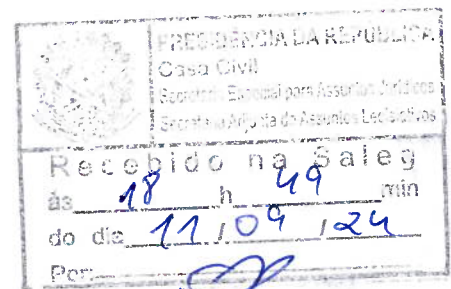 PRESIDÊNCIA DA REPÚBLICA
Casa Civil
Secretaria Especial para Assuntos Jurídicos
Secretaria Adjunta de Assuntos Legislativos
Recebido na Saleg
às 18 h 49 min
do dia 11 / 09 / 24
Por: